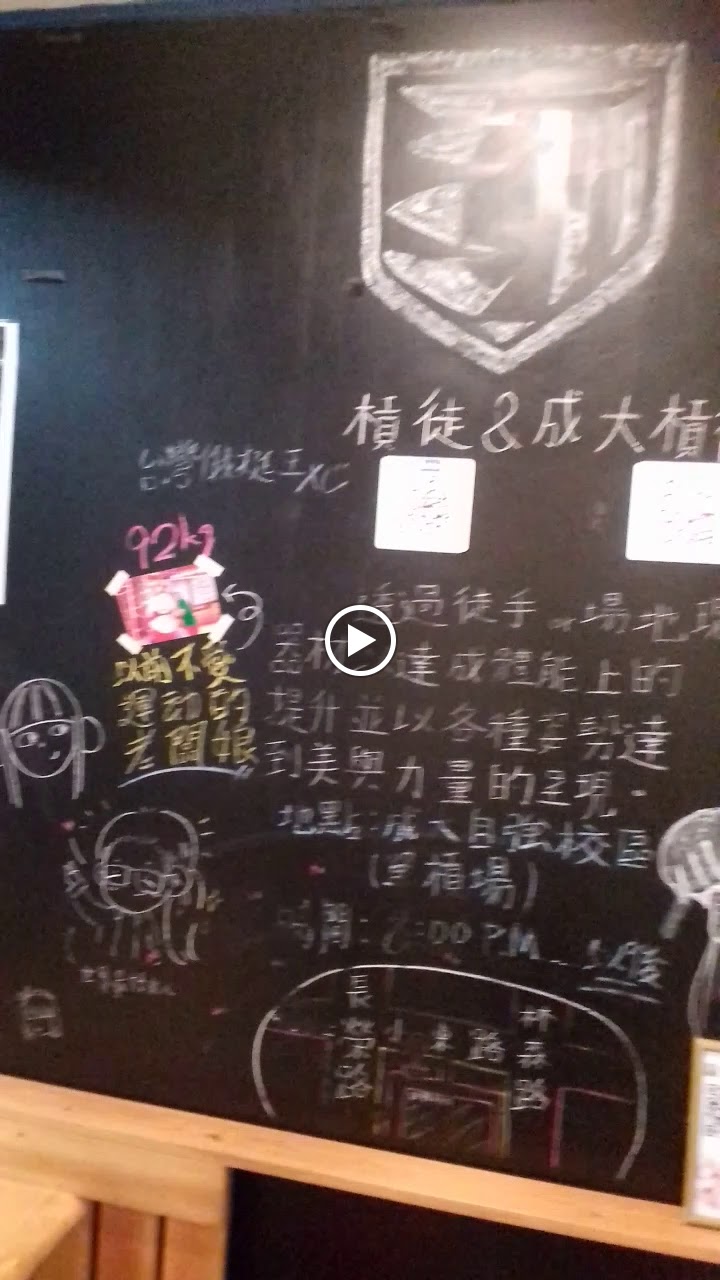 槓徒&成大槓
台灣
92kg
透過徒手、場地現
器材 達成體能上的
提升並以各種姿勢達
到美與力量的呈現.
地點:成大自強校區
(單槓場)
時間: :00 P.M. 以後
不愛
運動的
老闆娘
長榮路
小東路
林森路